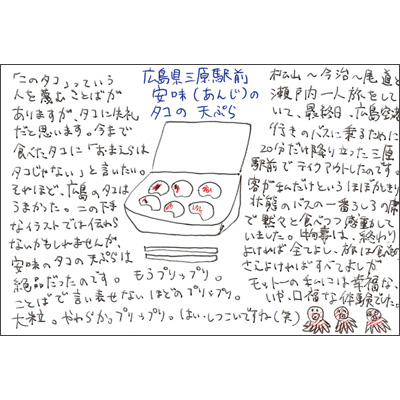 広島県三原駅前
安味(あんじ)の
タコの天ぷら
「このタコ」っていう
人を蔑むことばが
ありますが、タコに失礼
だと思います。今まで
食べたタコに「おまえらは
タコじゃない」と言いたい。
それほど、広島のタコは
うまかった。この下手
なイラストでは伝わら
ないかもしれませんが、
安味のタコの天ぷらは
絶品だったのです。もうプリップリ。
ことばで言い表せないほどのプリップリ。
大粒。やわらか。プリップリ。はい、しつこいですね(笑)
松山〜今治〜尾道と
瀬戸内一人旅をして
いて、最終日、広島空港
行きのバスに乗るために
20分だけ降り立った三原
駅前でテイクアウトしたのです。
客が私だけというほぼ貸しきり
状態のバスの一番うしろの席
で黙々と食べつつ感動して
いました。物事は、終わり
よければ全てよし、旅は食事
さえよければすべてよしが
モットーの私には幸福な、
いや、口福な体験でした。